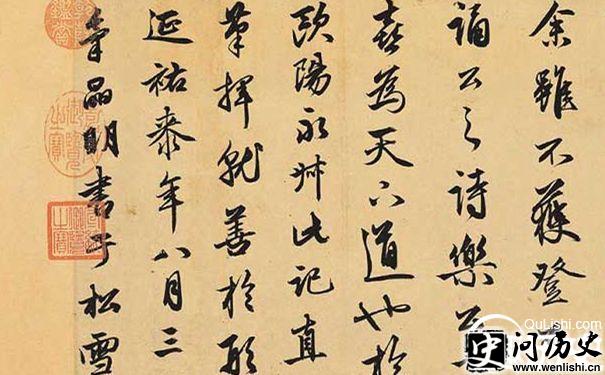 余雖不獲登
誦公之詩樂公
喜為天下道也於
歐陽永叔此記直
筆揮就善於形
延祐泰年八月三
晶明書于松雪
QuLishi.com
问历史
www.wenlishi.cn